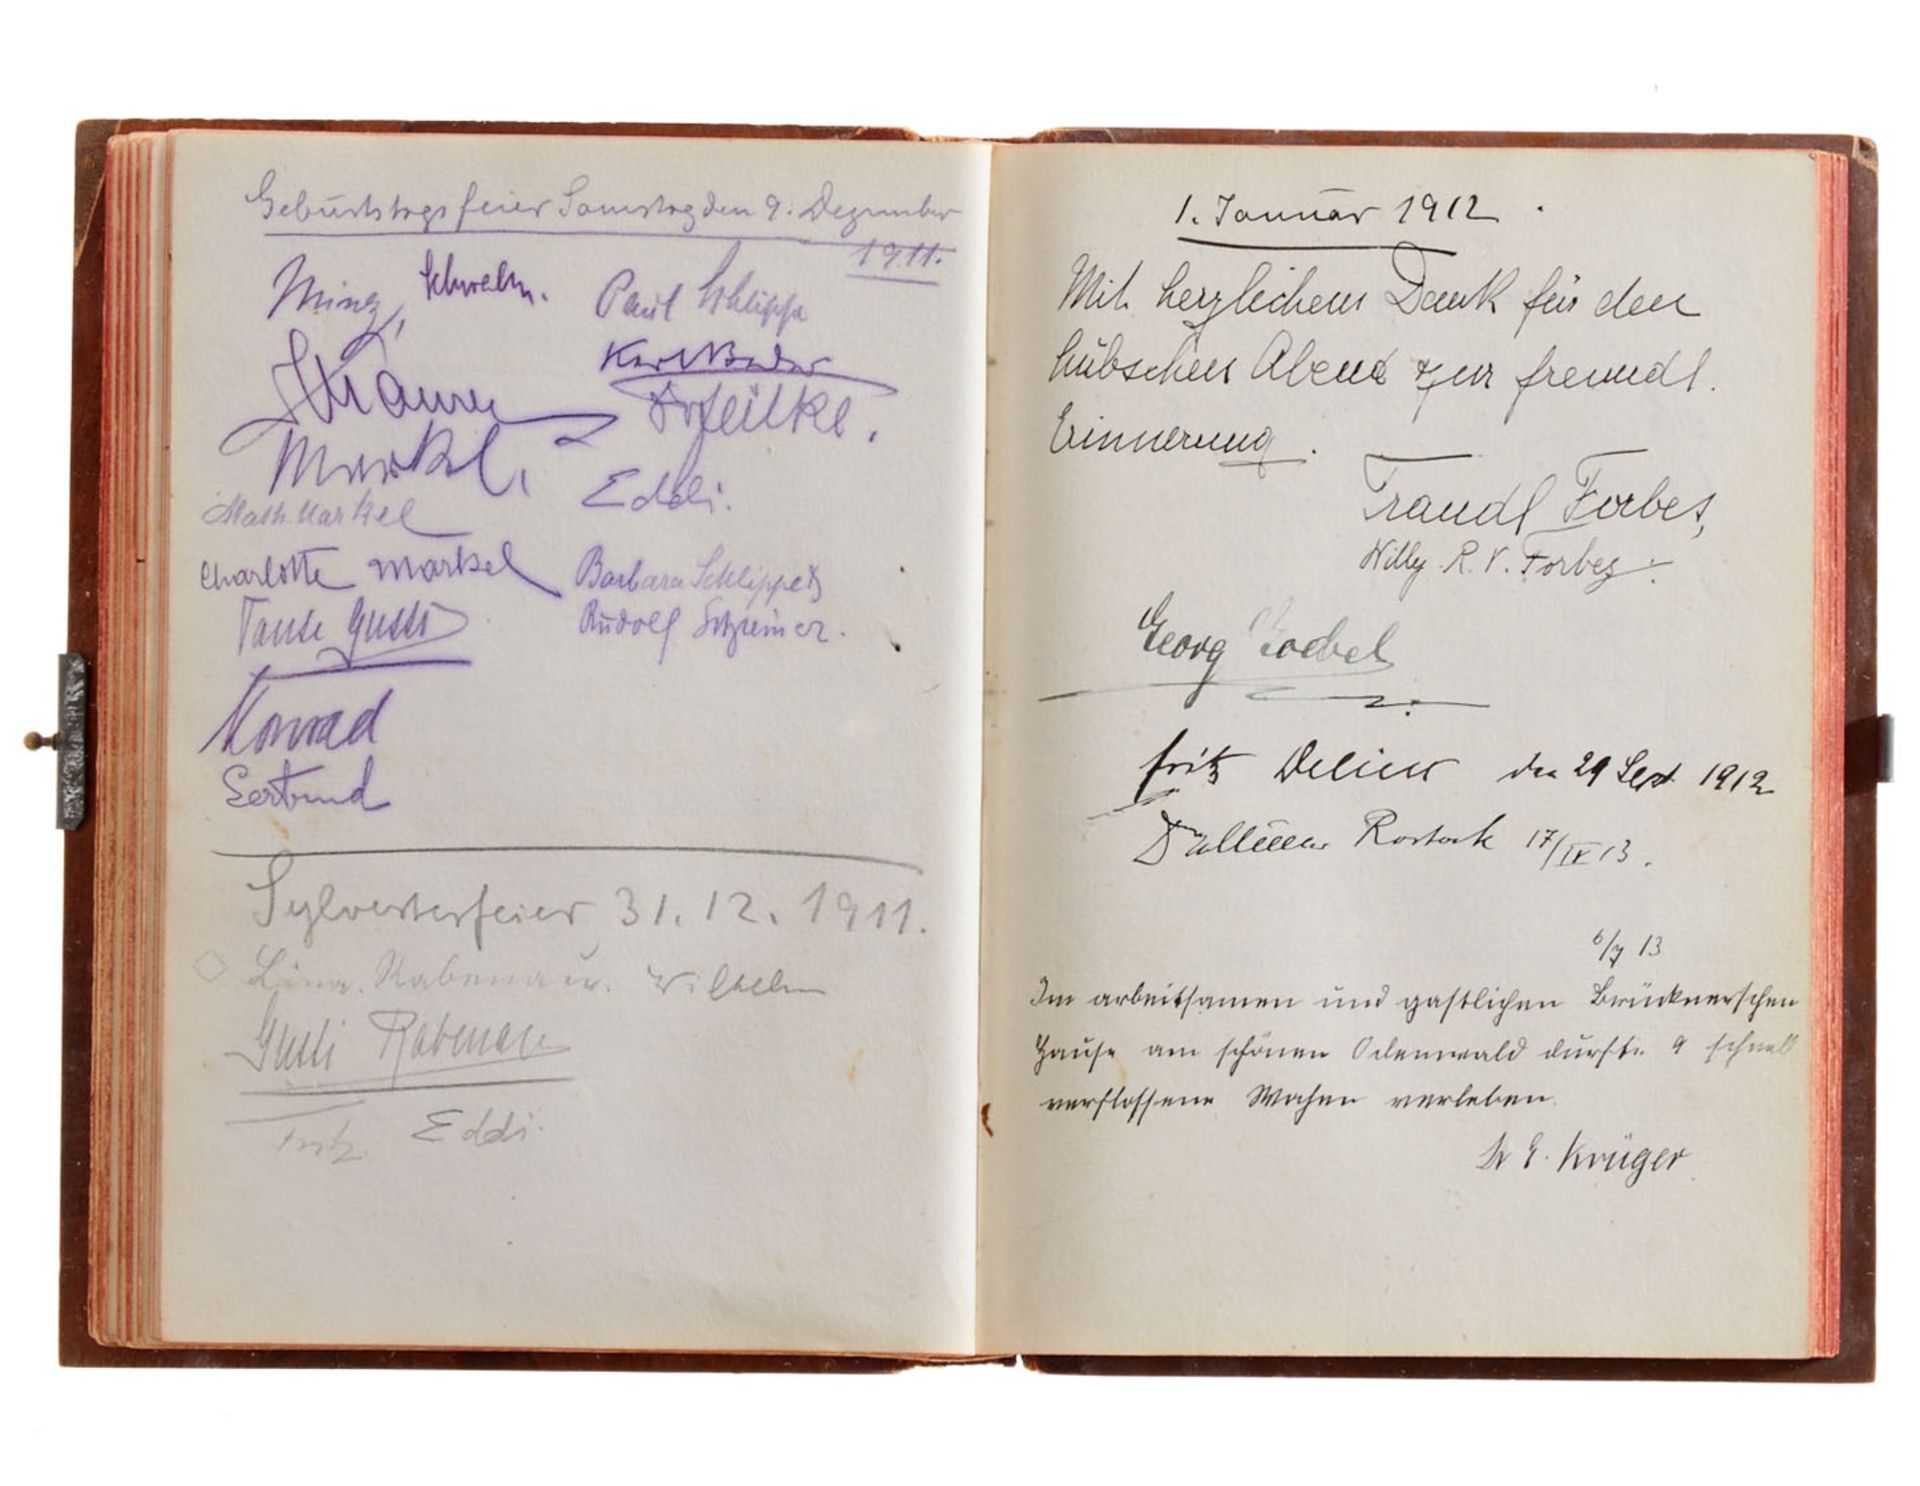 Geburtstagsfeier Samstag den 9. Dezember
1911.
Schwalm.
Paul Schlippe
Markel.
Eddi.
Math. Markel
Charlotte Markel
Barbara Schlippe
Tante Gussi
Rudolf
Konrad
Gertrud
Sylvesterfeier 31.12.1911.
Lina Rabenau. Wilhelm
Gusti Rabenau
Fritz Eddi.
1. Januar 1912.
Mit herzlichem Dank für den
hübschen Abend zur freundl.
Erinnerung.
Traudl Forbes,
Willy R. V. Forbes.
Georg Goebel
Fritz Delius den 29 Sept 1912
Rostock 17/IV 13.
6/7 13
Im arbeitsamen und gastlichen Brücknerschen
Hause am schönen Odenwald durfte 9 schnell
verflossene Wochen verleben.
Dr E. Krüger